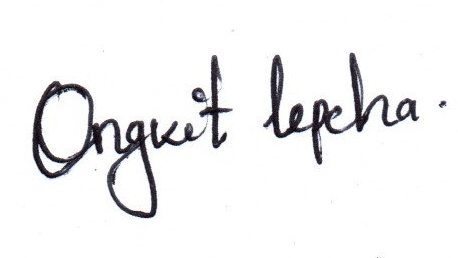 Ongkit lepcha.